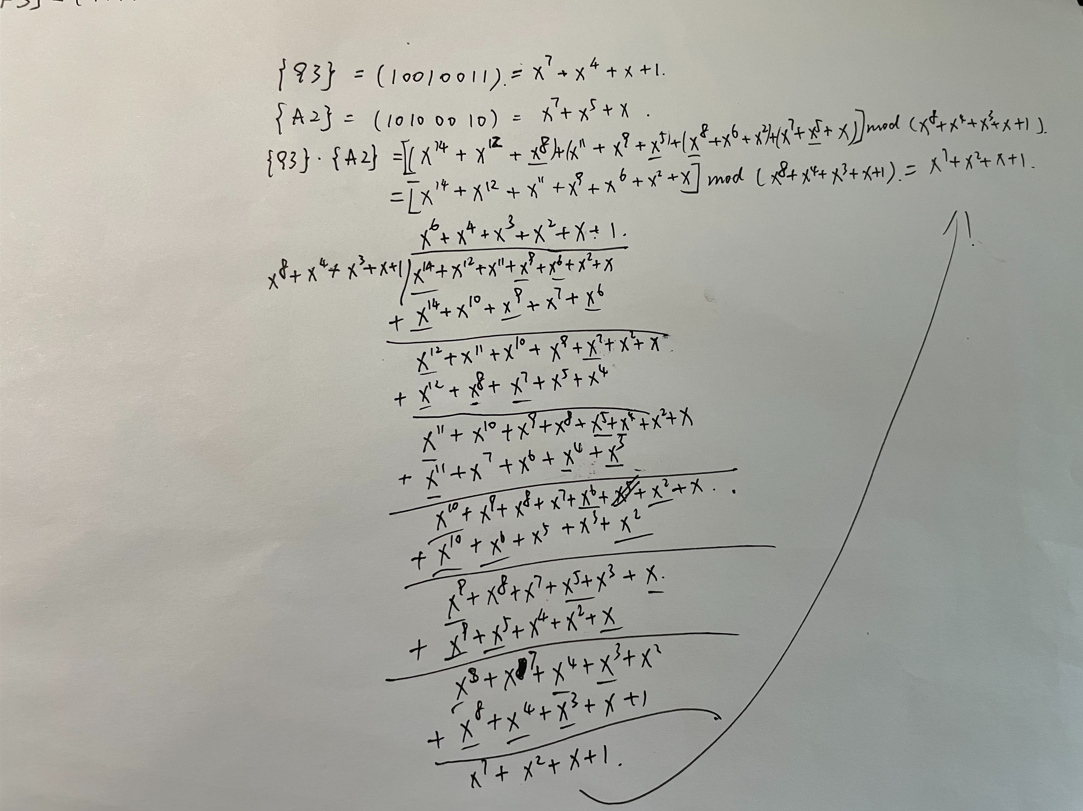 {93} = (10010011) = x⁷ + x⁴ + x + 1.
{A2} = (10100010) = x⁷ + x⁵ + x.
{93}·{A2} = [(x¹⁴ + x¹² + x⁸) + (x¹¹ + x⁹ + x⁵) + (x⁸ + x⁶ + x²) + (x⁷ + x⁵ + x)] mod (x⁸ + x⁴ + x³ + x + 1).
= [x¹⁴ + x¹² + x¹¹ + x⁹ + x⁶ + x² + x] mod (x⁸ + x⁴ + x³ + x + 1) = x⁷ + x² + x + 1.
x⁶ + x⁴ + x³ + x² + x + 1.
x⁸ + x⁴ + x³ + x + 1 ) x¹⁴ + x¹² + x¹¹ + x⁹ + x⁶ + x² + x
+ x¹⁴ + x¹⁰ + x⁹ + x⁷ + x⁶
x¹² + x¹¹ + x¹⁰ + x⁹ + x⁷ + x² + x
+ x¹² + x⁸ + x⁷ + x⁵ + x⁴
x¹¹ + x¹⁰ + x⁹ + x⁸ + x⁵ + x⁴ + x² + x
+ x¹¹ + x⁷ + x⁶ + x⁴ + x⁵
x¹⁰ + x⁹ + x⁸ + x⁷ + x⁶ + x² + x.
+ x¹⁰ + x⁶ + x⁵ + x³ + x²
x⁹ + x⁸ + x⁷ + x⁵ + x³ + x.
+ x⁹ + x⁵ + x⁴ + x² + x
x⁸ + x⁷ + x⁴ + x³ + x²
+ x⁸ + x⁴ + x³ + x + 1
x⁷ + x² + x + 1.